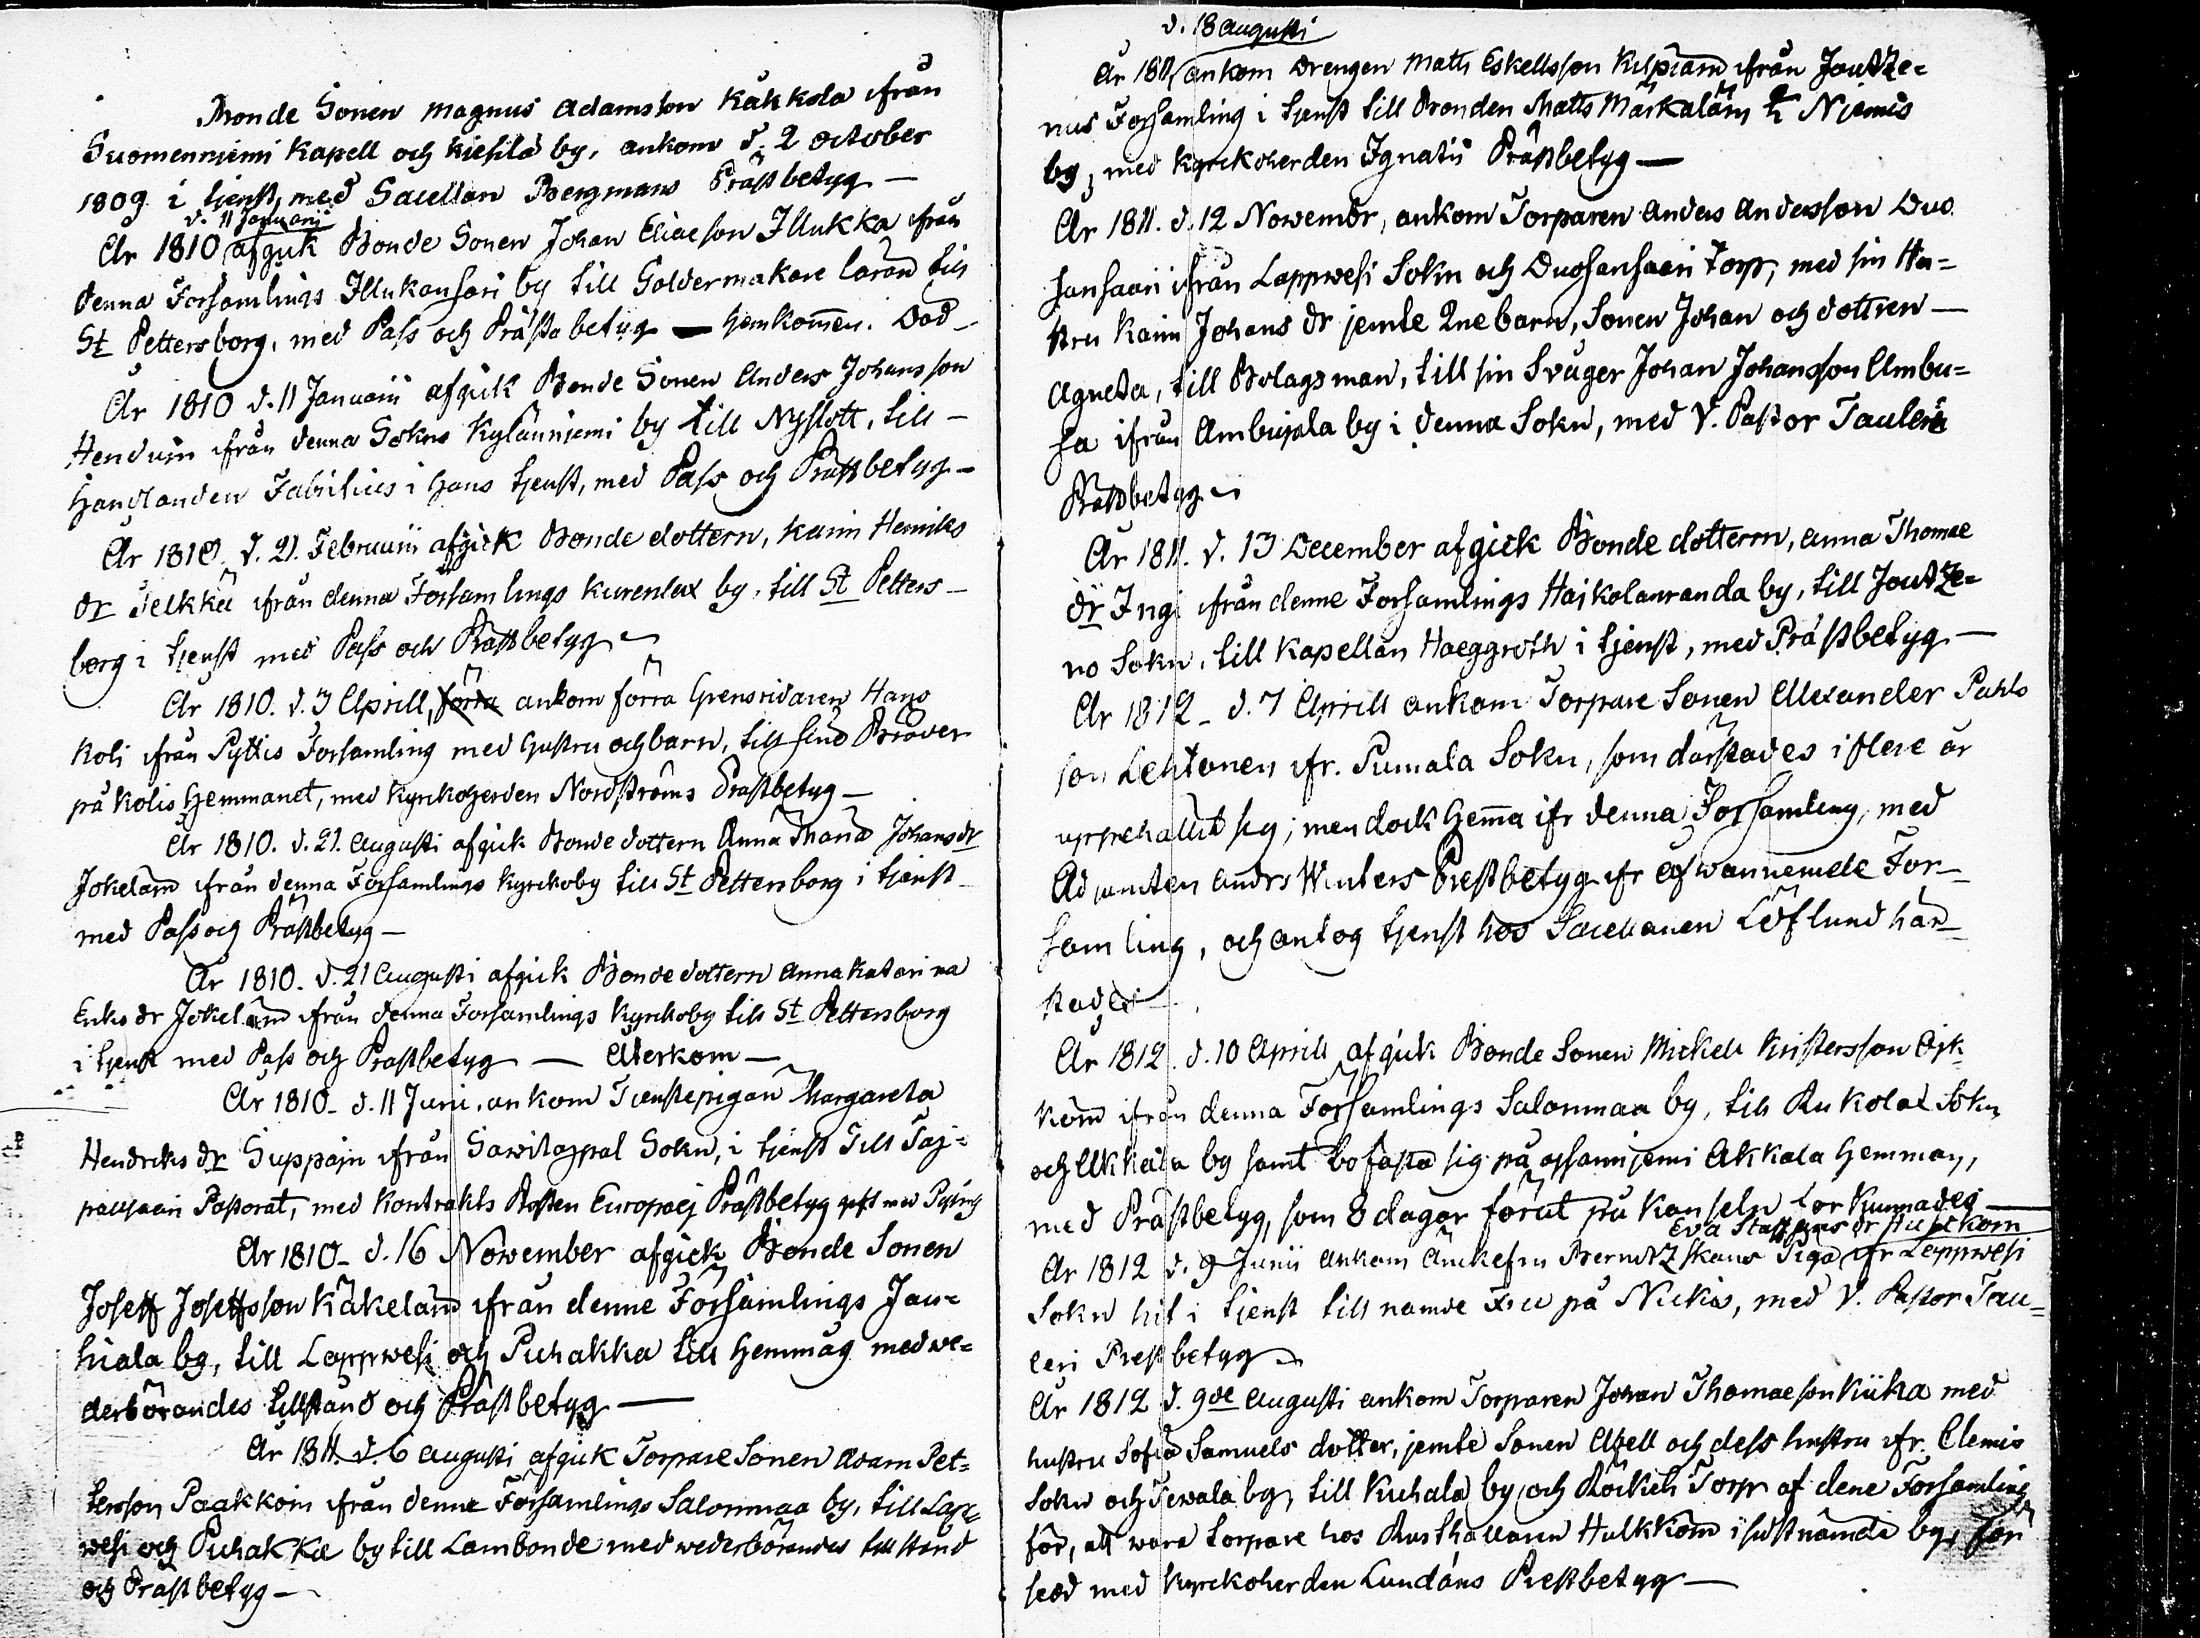 Bonde Sonen Magnus Adamsson Käkkola ifrån
Suomenniemi Kapell och Kiesilä by, ankom d. 2 October
1809 i tjenst med Sacellan Bergmans Prästbetyg —
d. 11 Januarii
År 1810 afgick Bonde Sonen Johan Eliaeson Illukka ifrån
denna Forsamlings Illukansari by till Goldermakare läran till
St Pettersborg, med Pass och Prästabetyg — hemkommen. Död —
År 1810 d. 11 Januarii afgick Bonde Sonen Anders Johansson
Henduin ifrån denna Sokns Kyläniemi by till Nyslott, till —
Handlanden Fabritius i hans tjenst, med Pass och Prästbetyg —
År 1810. d. 21. Februarii afgick Bonde dottern, Karin Henriks
dr Selkkä ifrån denna Församlings Kurenlax by, till St Petters —
borg i tjenst med Pass och Prästbetyg
År 1810. d. 3 Aprill, förra ankom förra Grensridaren Hans
Koli ifrån Pyttis Forsamling med hustru och barn, till sina Bröder
på Kolis Hemmanet, med Kyrckoherden Nordströms Prästbetyg —
År 1810. d. 21. Augusti afgick Bonde dottern Anna Maria Johans dr
Jokelain ifrån denna Forsamlings Kyrckoby till St Pettersborg i tjenst
med Pass och Prästbetyg —
År 1810. d. 21 Augusti afgick Bonde dottern Anna Katarina
Eriks dr Jokelain ifrån denna Forsamlings Kyrckoby till St Pettersborg
i tjenst med Pass och Prästbetyg — Återkom —
År 1810. d. 11 Juni, ankom Tjenstepigan Margareta
Hendriks dr Suppoin ifrån Sawitaipal Sokn, i tjenst till Taj=
palsaari Pastorat, med Kontrakts Prosten Europaei Prästbetyg
År 1810. d. 16 Nowember afgick Bonde Sonen
Joseff Joseffsson Käkeläin ifrån denne Församlings Jau=
hiala by, till Lappwesi och Puhakka till Hemmåg med we=
derbörandes tillstånd och Prästbetyg —
År 1811. d. 6 Augusti afgick Torpare Sonen Adam Pet=
tersson Paakkoin ifrån denne Församlings Salonmaa by, till Lap=
wesi och Puhakka by till Lambonde med wederbörandes tillstånd
och Prästbetyg —
d. 18 Augusti
År 1811 ankom Drengen Matts Eskellsson Kilpiäin ifrån Joutze=
nus Forsamling i tjenst till Bonden Matts Märkäläin Niemis
by, med Kyrckoherden Ignatii Prästbetyg —
År 1811. d. 12 Nowembr, ankom Torparen Anders Andersson Duo
hansaari ifrån Lappwesi Sokn och Duohansaari torp, med sin Hu=
stru Karin Johans dr jemte 2ne barn, Sonen Johan och dottren —
Agneta, till Bolagsman, till sin Svåger Johan Johansson Ambu=
ha ifrån Ambujala by i denna Sokn, med V. Pastor Tauleri
Prästbetyg
År 1811. d. 13 December afgick Bonde dottern, Anna Thomae
dr Ingi ifrån denne Forsamlings Haikolanranda by, till Joutze=
no Sokn, till Kapellan Haeggroth i tjenst, med Prästbetyg —
År 1812 — d. 7 Aprill ankom Torpare Sonen Alexander Pahls
son Lehtonen ifr. Pumala Sokn, som därstades i flere år
uppehallit sig; men dock hemma ifr denna Forsamling, med
Adjuncten Andrs Winters Prestbetyg ifr ofwannemde For —
samling, och antog tjenst hos Sacellanen Löflund här —
stades —
År 1812. d. 10 Aprill afgick Bonde Sonen Mickell Kristersson Äik
käin ifrån denna Församlings Salonmaa by, till Rukolax Sokn
och Akkala by samt bofasta sig på Akkala Hemman,
med Prästbetyg, som 8 dagar förut på Kanseln forkunnades —
Eva Staffans dr
År 1812 d. 9 Junii ankom Änkefru Berndtzskans Piga ifr Lappwesi
Sokn hit i tjenst till namde Fru på Nickis, med V. Pastor Tau=
leri Prestbetyg
År 1812 d. 9de Augusti ankom Torparen Johan Thomaeson Kiika med
hustru Sofia Samuels dotter, jemte Sonen Abell och dess hustru ifr. Clemis
Sokn och Tewala by, till Kuhala by och Röckich Torp af dene Forsamling
för, att wara torpare hos Rusthållaren Hulkkoin i sistnämde by, för
sedd med Kyrckoherden Lundåns Prestbetyg —